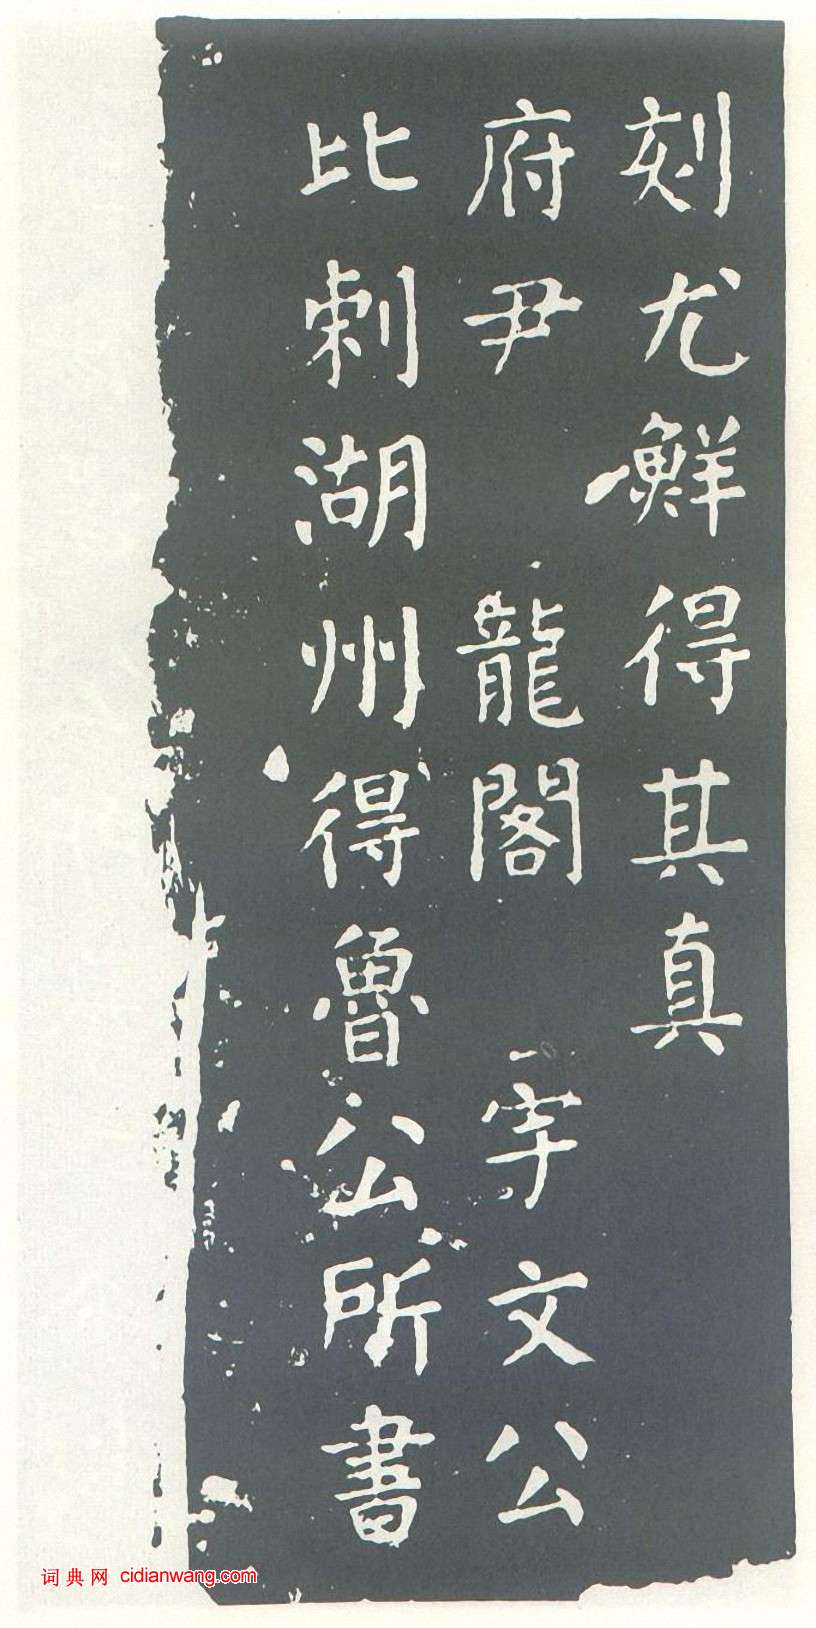 刻尤鮮得其真
府尹 龍閣 宇文公
比刺湖州得魯公所書
词典网 cidianwang.com